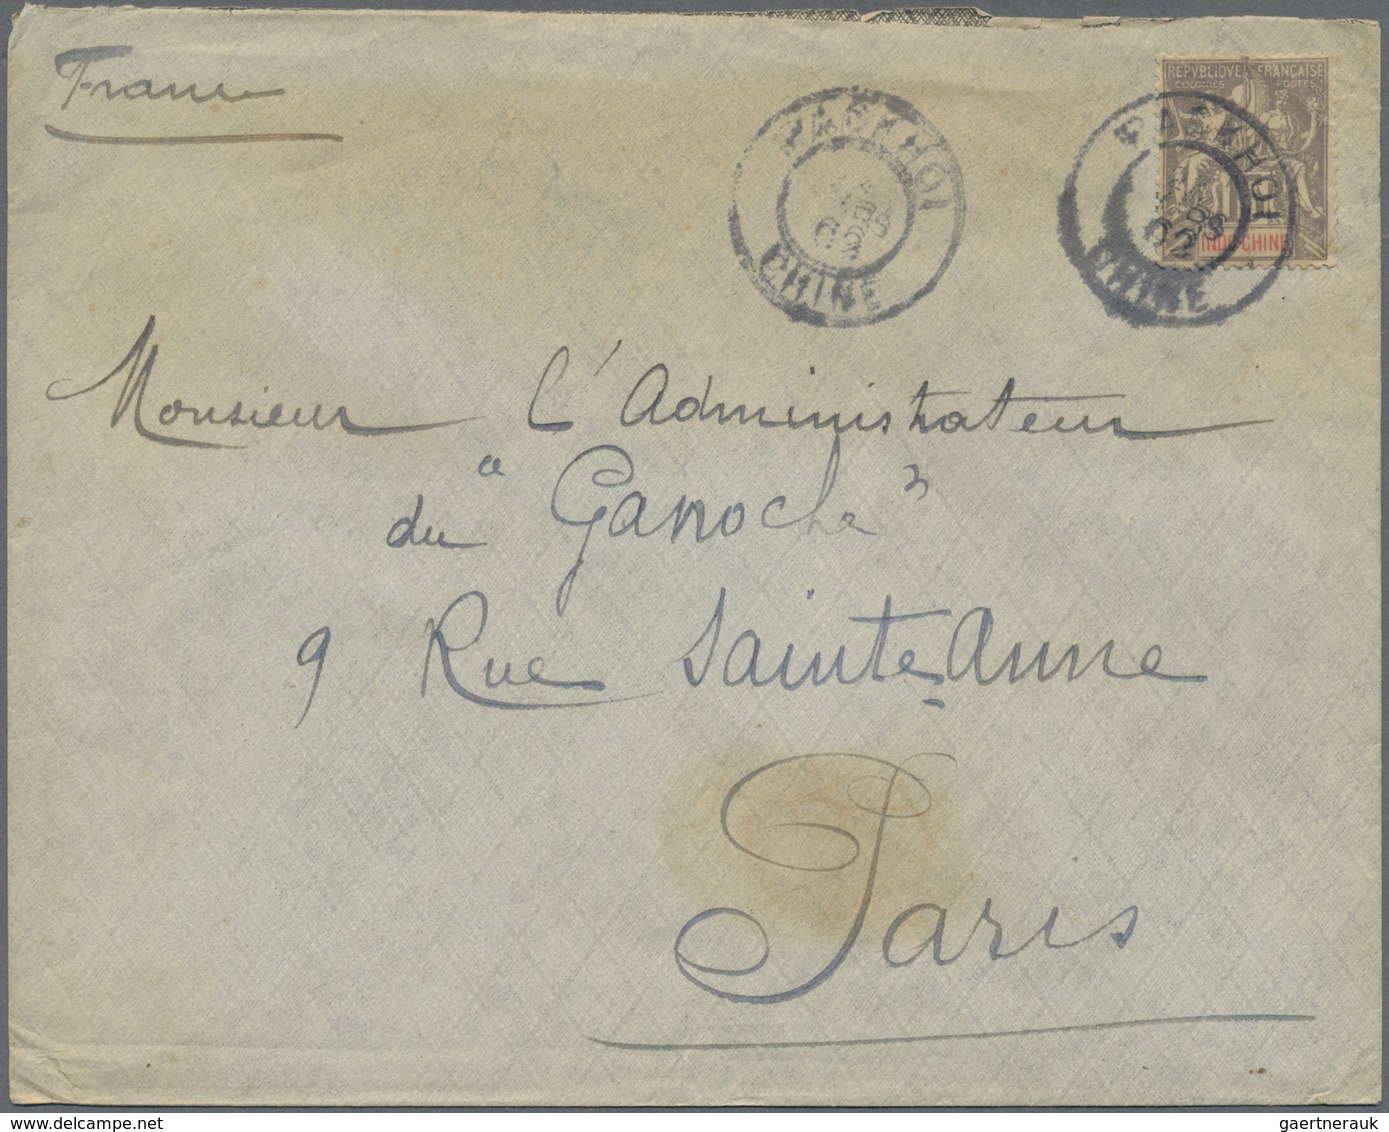 France
REPVBLIQVE FRANÇAISE
COLONIES POSTES
INDO-CHINE
PAKHOI
02
CHINE
PAKHOI
02
CHINE
Monsieur l'Administrateur
du "Gavroche"
9 Rue Sainte-Anne
Paris
gaertnerauk@delcampe.net